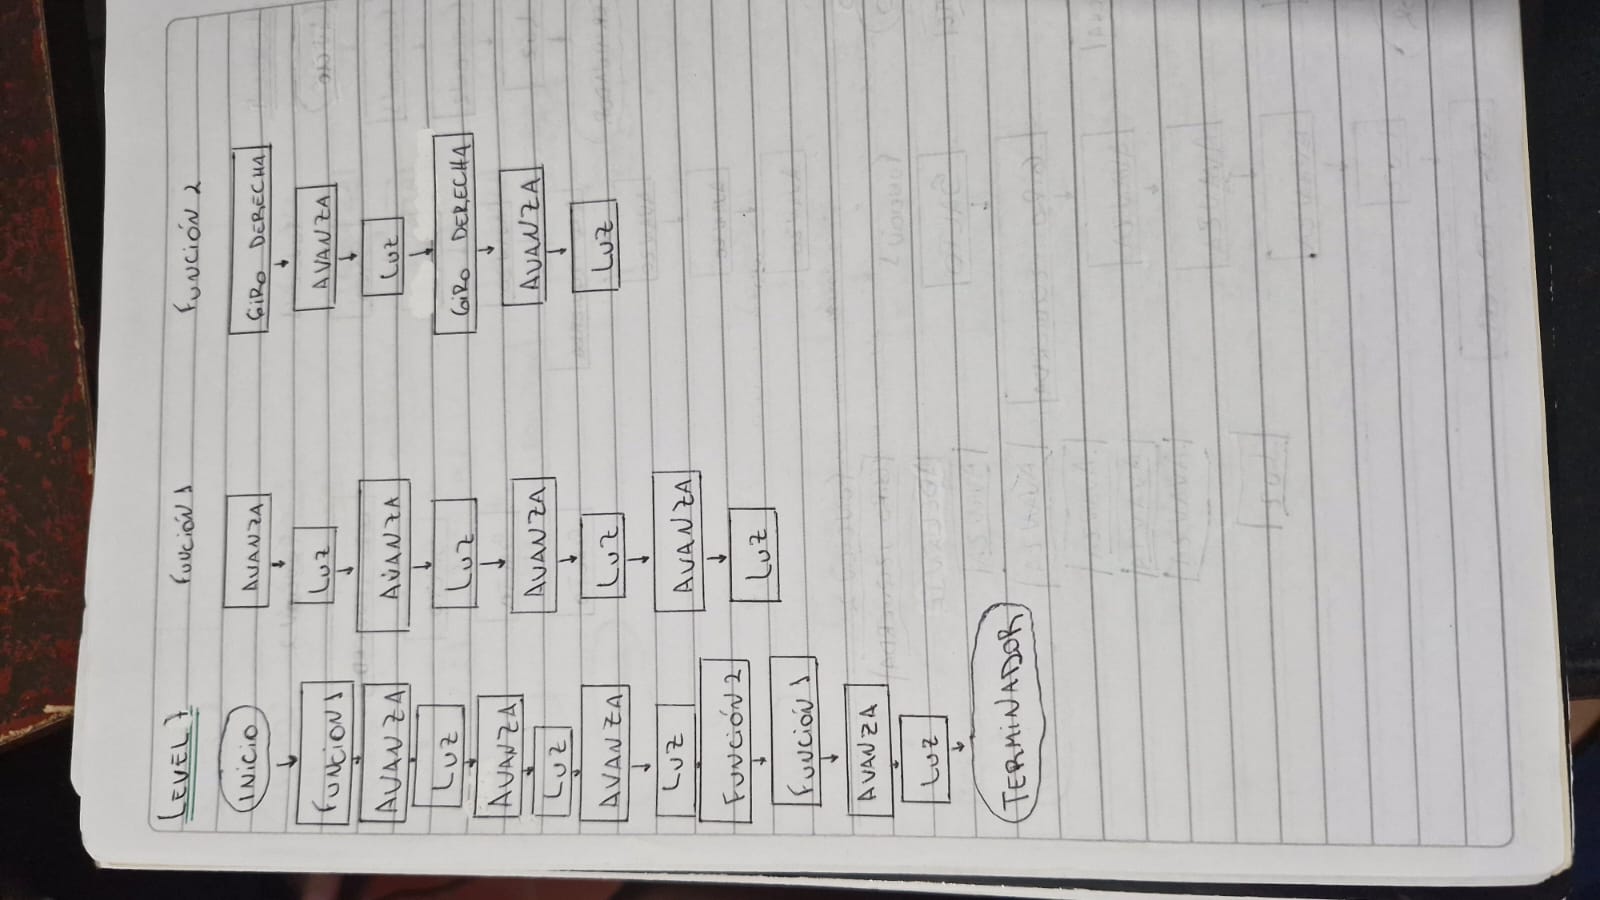 LEVEL 7
INICIO
FUNCION 1
AVANZA
LUZ
AVANZA
LUZ
AVANZA
LUZ
FUNCIÓN 2
FUNCIÓN 1
AVANZA
LUZ
TERMINADOR
FUNCIÓN 1
AVANZA
LUZ
AVANZA
LUZ
AVANZA
LUZ
AVANZA
LUZ
FUNCIÓN 2
GIRO DERECHA
AVANZA
LUZ
GIRO DERECHA
AVANZA
LUZ